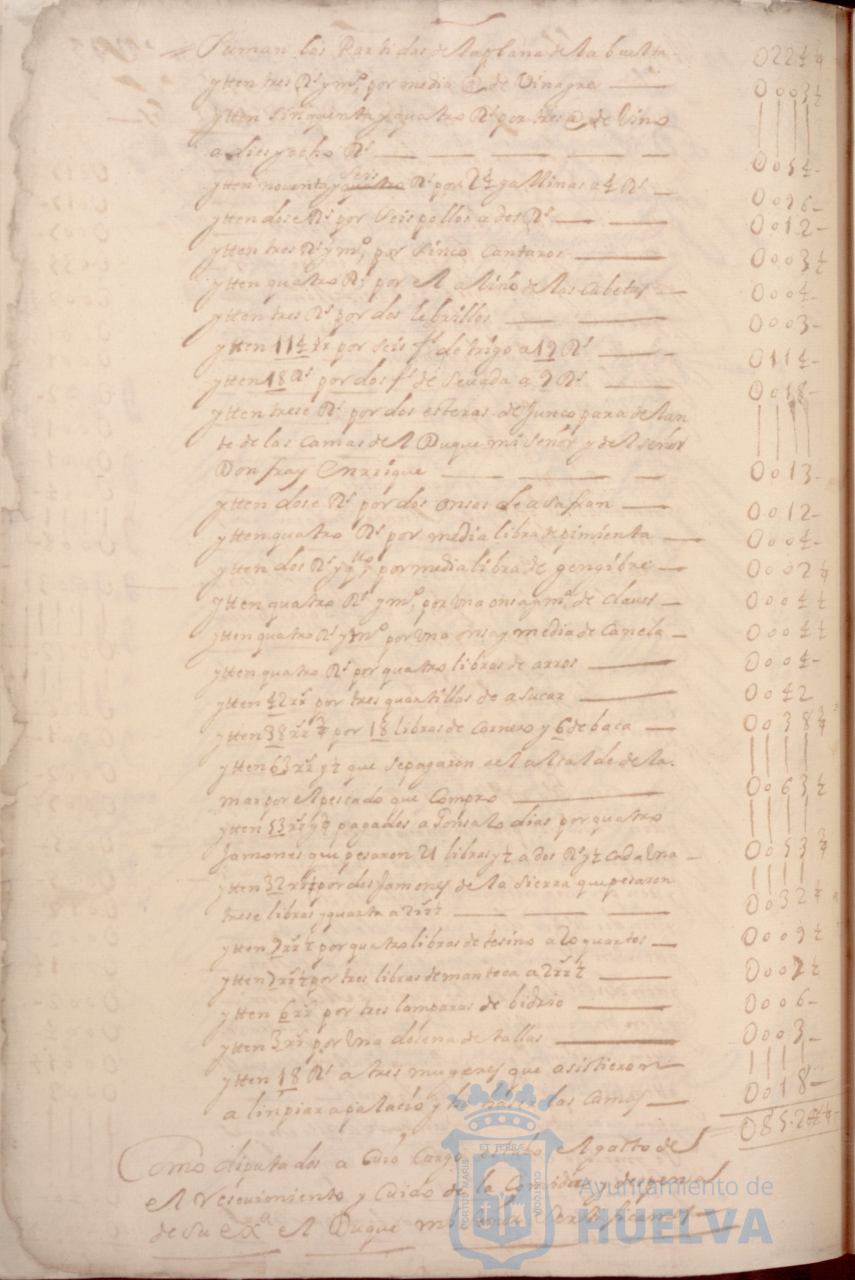 Suman las Partidas de la plana de la buelta 022 4/4
ytten tres Rs. y mº. por media @ de Vinagre 0003½
ytten Sinquenta y quatro Rs. por tres @ de Vino
a dies y ocho Rs. 0054
ytten noventa y seis Rs. por 24 gallinas a 4 Rs. 0096
ytten dose Rs. por seis pollos a dos Rs. 0012
ytten tres Rs. y mº. por sinco Cantaros 0003½
ytten quatro Rs. por el aliño de los Cubetos 0004
ytten tres Rs. por dos lebrillos 0003
ytten 114 rr por seis fs. de trigo a 19 Rs. 0114
ytten 18 Rs. por dos fs. de Sevada a 9 Rs. 0018
ytten trese Rs. por dos esteras de Junco para delan
te de las Camas del Duque mi señor y del señor
Don fray Enrrique 0013
ytten dose Rs. por dos onsas de asafran 0012
ytten quatro Rs. por media libra de pimienta 0004
ytten dos Rs. y qto. por media libra de gengibre 0002¼
ytten quatro Rs. y mº. por una onsa y mª. de claus 0004½
ytten quatro Rs. y mº. por una onsa y media de Canela 0004½
ytten quatro Rs. por quatro libras de arros 0004
ytten 42 rr por tres quartillas de asucar 0042
ytten 38 rr ¾ por 18 libras de Carnero y 6 de baca 0038¾
ytten 63 rr y ½ que se pagaron al Alcalde de la
mar por el pescado que Compro 0063½
ytten 53 rr y ¾ pagados a Gonsalo dias por quatro
Jamones que pesaron 21 libras y ½ a dos Rs. y ½ cada una 0053¾
ytten 32 rr ¼ por dos Jamones de la Sierra que pesaron
trese libras y quarta a 0032¼
ytten 9 rr ½ por quatro libras de tosino a 20 quartos 0009½
ytten 7 rr ½ por tres libras de manteca a 2 rr ½ 0007½
ytten 6 rr por tres lamparas de bidrio 0006
ytten 3 rr por una dosena de tallas 0003
ytten 18 Rs. a tres mugeres que asistieron
a linpiar a palacio y las Camas 0018
Como diputados a Cuio Cargo el gasto de
el resevimiento y Cuido de la Comida y despensa
de su exª. el Duque mi
ET TERRÆ
PORTUS MARIS
CUSTODIA
Ayuntamiento de
HUELVA